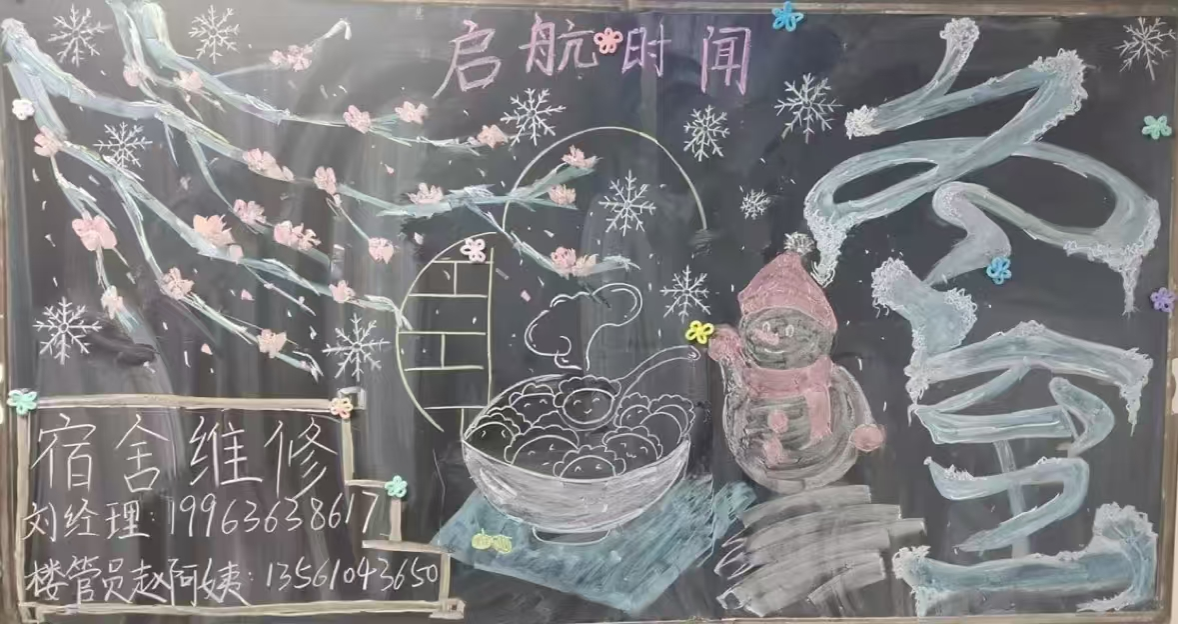 启航时间
冬至
宿舍维修
刘经理:19963638617
楼管员赵阿姨:13561043650